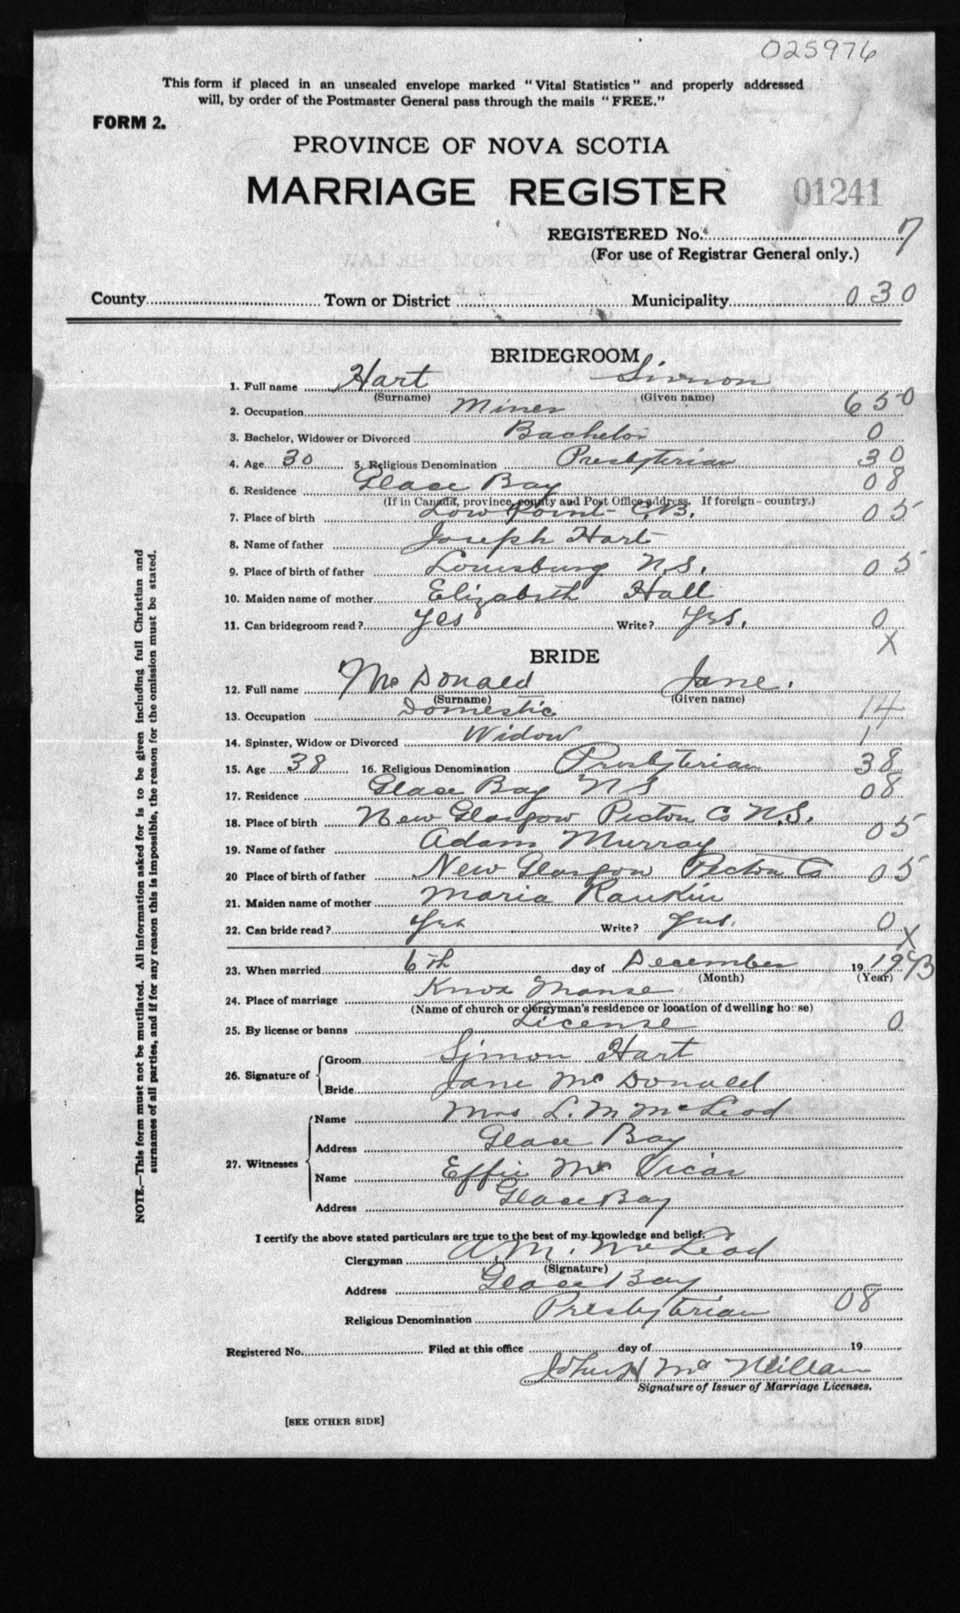 025976
This form if placed in an unsealed envelope marked "Vital Statistics" and properly addressed
will, by order of the Postmaster General pass through the mails "FREE."
FORM 2.
PROVINCE OF NOVA SCOTIA
MARRIAGE REGISTER 01241
REGISTERED No. 7
(For use of Registrar General only.)
County Town or District Municipality 030
BRIDEGROOM
1. Full name Hart Simon
(Surname) (Given name)
2. Occupation Miner 650
3. Bachelor, Widower or Divorced Bachelor 0
4. Age 30 5. Religious Denomination Presbyterian 30
6. Residence Glace Bay 08
(If in Canada, province, county and Post Office address. If foreign - country.)
7. Place of birth Low Point C.B. 05
8. Name of father Joseph Hart
9. Place of birth of father Louisburg N.S. 05
10. Maiden name of mother Elizabeth Hall
11. Can bridegroom read? Yes Write? Yes. 0
X
BRIDE
12. Full name McDonald Jane.
(Surname) (Given name)
13. Occupation Domestic 14
14. Spinster, Widow or Divorced Widow 1
15. Age 38 16. Religious Denomination Presbyterian 38
17. Residence Glace Bay N S 08
18. Place of birth New Glasgow Pictou Co N.S. 05
19. Name of father Adam Murray
20 Place of birth of father New Glasgow Pictou Co 05
21. Maiden name of mother Maria Rankin
22. Can bride read? Yes Write? Yes. 0
X
23. When married 6th day of December 19 19
(Month) (Year)
24. Place of marriage Knox Manse
(Name of church or clergyman's residence or location of dwelling house)
25. By license or banns License 0
26. Signature of Groom Simon Hart
Bride Jane McDonald
27. Witnesses Name Mrs L. M McLeod
Address Glace Bay
Name Effie McVicar
Address Glace Bay
I certify the above stated particulars are true to the best of my knowledge and belief.
Clergyman A. M. McLeod
(Signature)
Address Glace Bay
Religious Denomination Presbyterian 08
Registered No. Filed at this office day of 19
John H McMillan
Signature of Issuer of Marriage Licenses.
[SEE OTHER SIDE]
NOTE.—This form must not be mutilated. All information asked for is to be given including full Christian and
surnames of all parties, and if for any reason this is impossible, the reason for the omission must be stated.